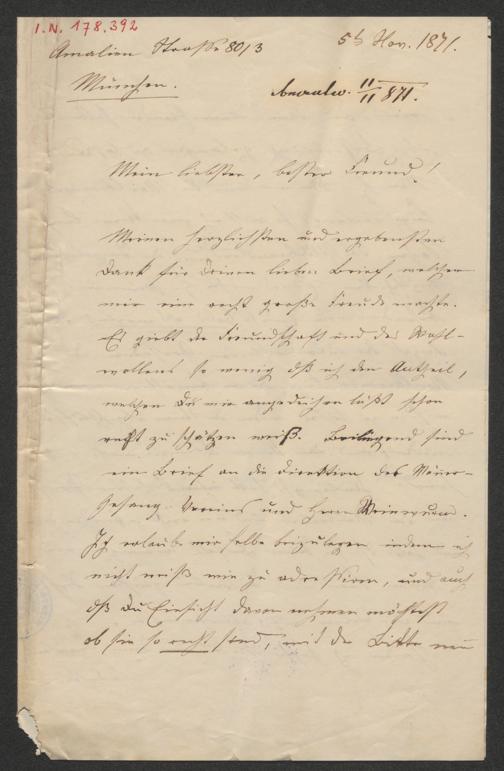 I.N. 178.392
Amalien Straße 80/3
5t Nov. 1871.
München.
11/11 871.
Mein liebster, bester Freund!
Meinen herzlichsten und ergebensten
Dank für Deinen lieben Brief, welcher
mir eine recht große Freude machte.
Es giebt der Freundschaft und des Wohl-
wollens so wenig dß ich den Antheil,
welchen Du mir angedeihen läßt schon
recht zu schätzen weiß. Beiliegend sind
ein Brief an die Direktion des Männer-
Gesang Vereins und Herrn Weinwurm.
Ich erlaube mir selbe beizulegen indem ich
nicht weiß wie zu adressiren, und auch
dß Du Einsicht davon nehmen möchtest
ob sie so recht sind, mit der Bitte